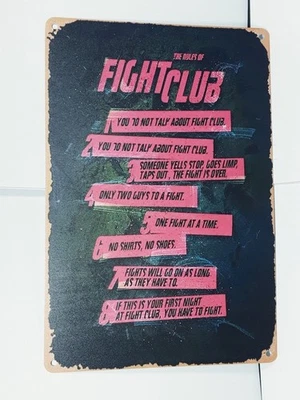 THE RULES OF
FIGHT CLUB
1 YOU DO NOT TALK ABOUT FIGHT CLUB.
2 YOU DO NOT TALK ABOUT FIGHT CLUB.
3 SOMEONE YELLS STOP, GOES LIMP,
TAPS OUT, THE FIGHT IS OVER.
4 ONLY TWO GUYS TO A FIGHT.
5 ONE FIGHT AT A TIME.
6 NO SHIRTS, NO SHOES.
7 FIGHTS WILL GO ON AS LONG
AS THEY HAVE TO.
8 IF THIS IS YOUR FIRST NIGHT
AT FIGHT CLUB, YOU HAVE TO FIGHT.